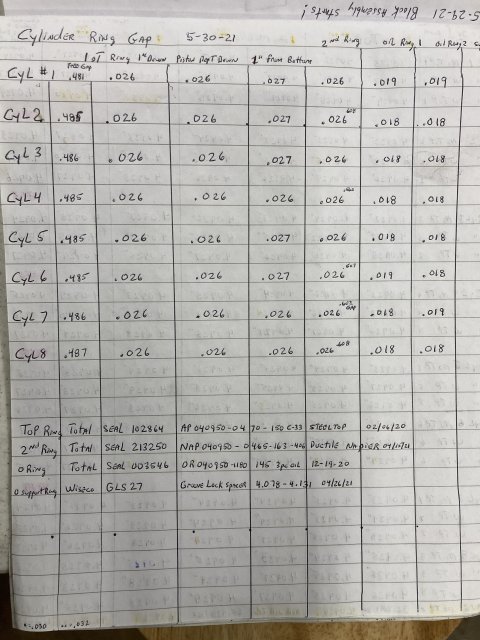 5-29-21 Block Assembly starts!
Cylinder Ring Gap 5-30-21 2nd Ring oil Ring 1 oil Ring 2
Free Gap 1st Ring 1" Down Piston Dept Down 1" from Bottom
Cyl #1 .481 .026 .026 .027 .026 .019 .019
Cyl 2 .485 .026 .026 .027 .026 .018 .018
Cyl 3 .486 .026 .026 .027 .026 .018 .018
Cyl 4 .485 .026 .026 .026 .026 .018 .018
Cyl 5 .485 .026 .026 .027 .026 .018 .018
Cyl 6 .485 .026 .026 .027 .026 .019 .018
Cyl 7 .486 .026 .026 .026 .026 .018 .019
Cyl 8 .487 .026 .026 .026 .026 .608 .018 .018
Top Ring Total SEAL 102864 AP040950-04 70-150 C-33 STEEL TOP 02/06/20
2nd Ring Total SEAL 213250 NAP040950-0465-163-406 Ductile NAPIER
O Ring Total SEAL 003546 OR040950-1180 145 3pc oil 12-19-20
O support Ring Wiseco GLS27 Groove Lock Spacer 4.078-4.131 04/26/21
.=.030 ..=.032